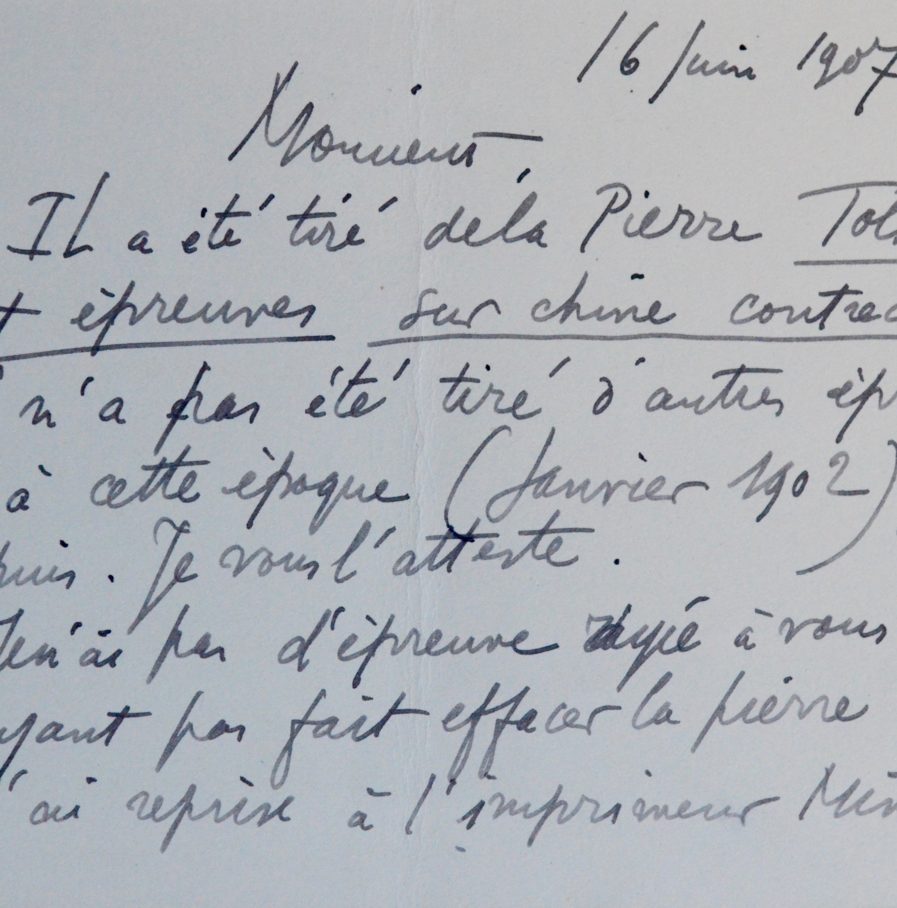 16 Juin 1907
Monsieur,
Il a été tiré de la Pierre Tols
t épreuves sur chine contrec
n'a pas été tiré d'autres ép
à cette époque (Janvier 1902)
puis. Je vous l'atteste.
Je n'ai pas d'épreuve à vous
ayant pas fait effacer la pierre
'ai reprise à l'imprimeur